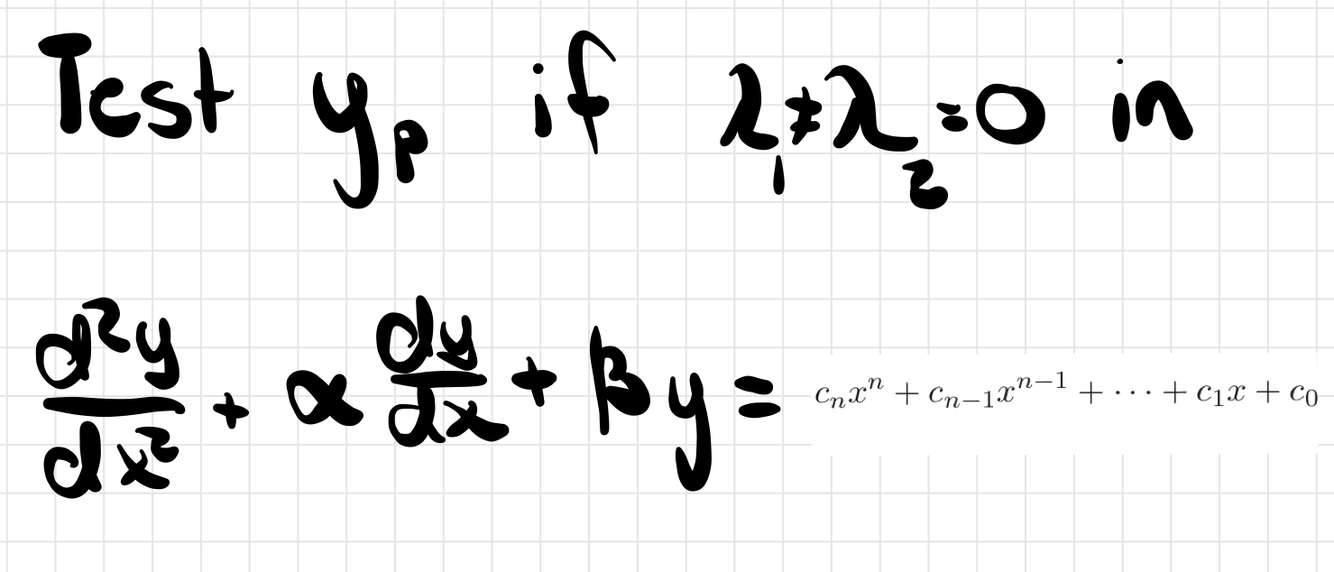 Test yₚ if λ₁≠λ₂=0 in
d²y/dx² + α dy/dx + βy = cₙxⁿ + cₙ₋₁xⁿ⁻¹ + ⋯ + c₁x + c₀